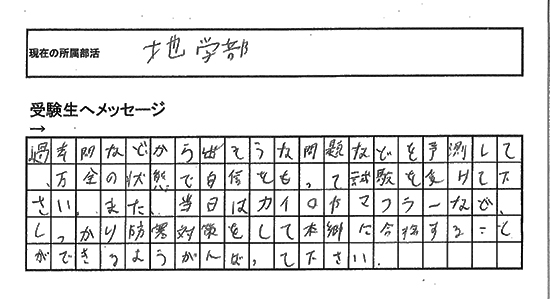 現在の所属部活 地学部
受験生へメッセージ
→
過去問などから出そうな問題などを予測して
、万全の状態で自信をもって試験を受けて下
さい。また、当日はカイロやマフラーなどで、
しっかり防寒対策をして本郷に合格すること
ができるようがんばって下さい。